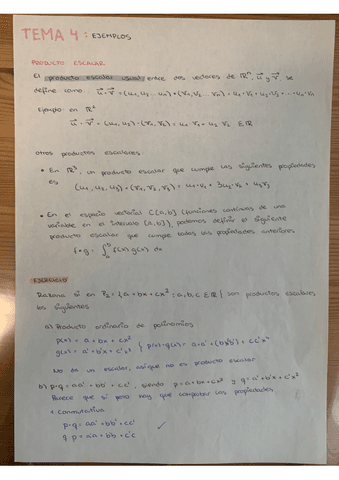 TEMA 4: EJEMPLOS
PRODUCTO ESCALAR
El producto escalar usual entre dos vectores de ℝⁿ, u⃗ y v⃗, se
define como: u⃗·v⃗ = (u₁, u₂ ... uₙ)·(v₁, v₂ ... vₙ) = u₁·v₁ + u₂·v₂ + ... + uₙ·vₙ
Ejemplo: en ℝ²
u⃗ · v⃗ = (u₁, u₂)·(v₁, v₂) = u₁·v₁ + u₂·v₂ ∈ ℝ
Otros productos escalares:
• En ℝ³, un producto escalar que cumple las siguientes propiedades
es:
(u₁, u₂, u₃)·(v₁, v₂, v₃) = u₁·v₁ + 3u₂·v₂ + u₃v₃
• En el espacio vectorial C[a,b] (funciones continuas de una
variable en el intervalo [a,b]), podemos definir el siguiente
producto escalar que cumple todas las propiedades anteriores
f·g = ∫ₐᵇ f(x)·g(x) dx
EJERCICIO
Razona si en P₂ = {a + bx + cx² : a, b, c ∈ ℝ} son productos escalares
los siguientes
a) Producto ordinario de polinomios
p(x) = a + bx + cx²
q(x) = a' + b'x + c'x² } p(x)·q(x) = a·a' + (bb') + cc'x⁴
No da un escalar, así que no es producto escalar
b) p·q = aa' + bb' + cc', siendo p = a + bx + cx² y q = a' + b'x + c'x²
Parece que sí pero hay que comprobar las propiedades
1. Conmutativa
p·q = aa' + bb' + cc' ✓
q·p = a'a + b'b + c'c